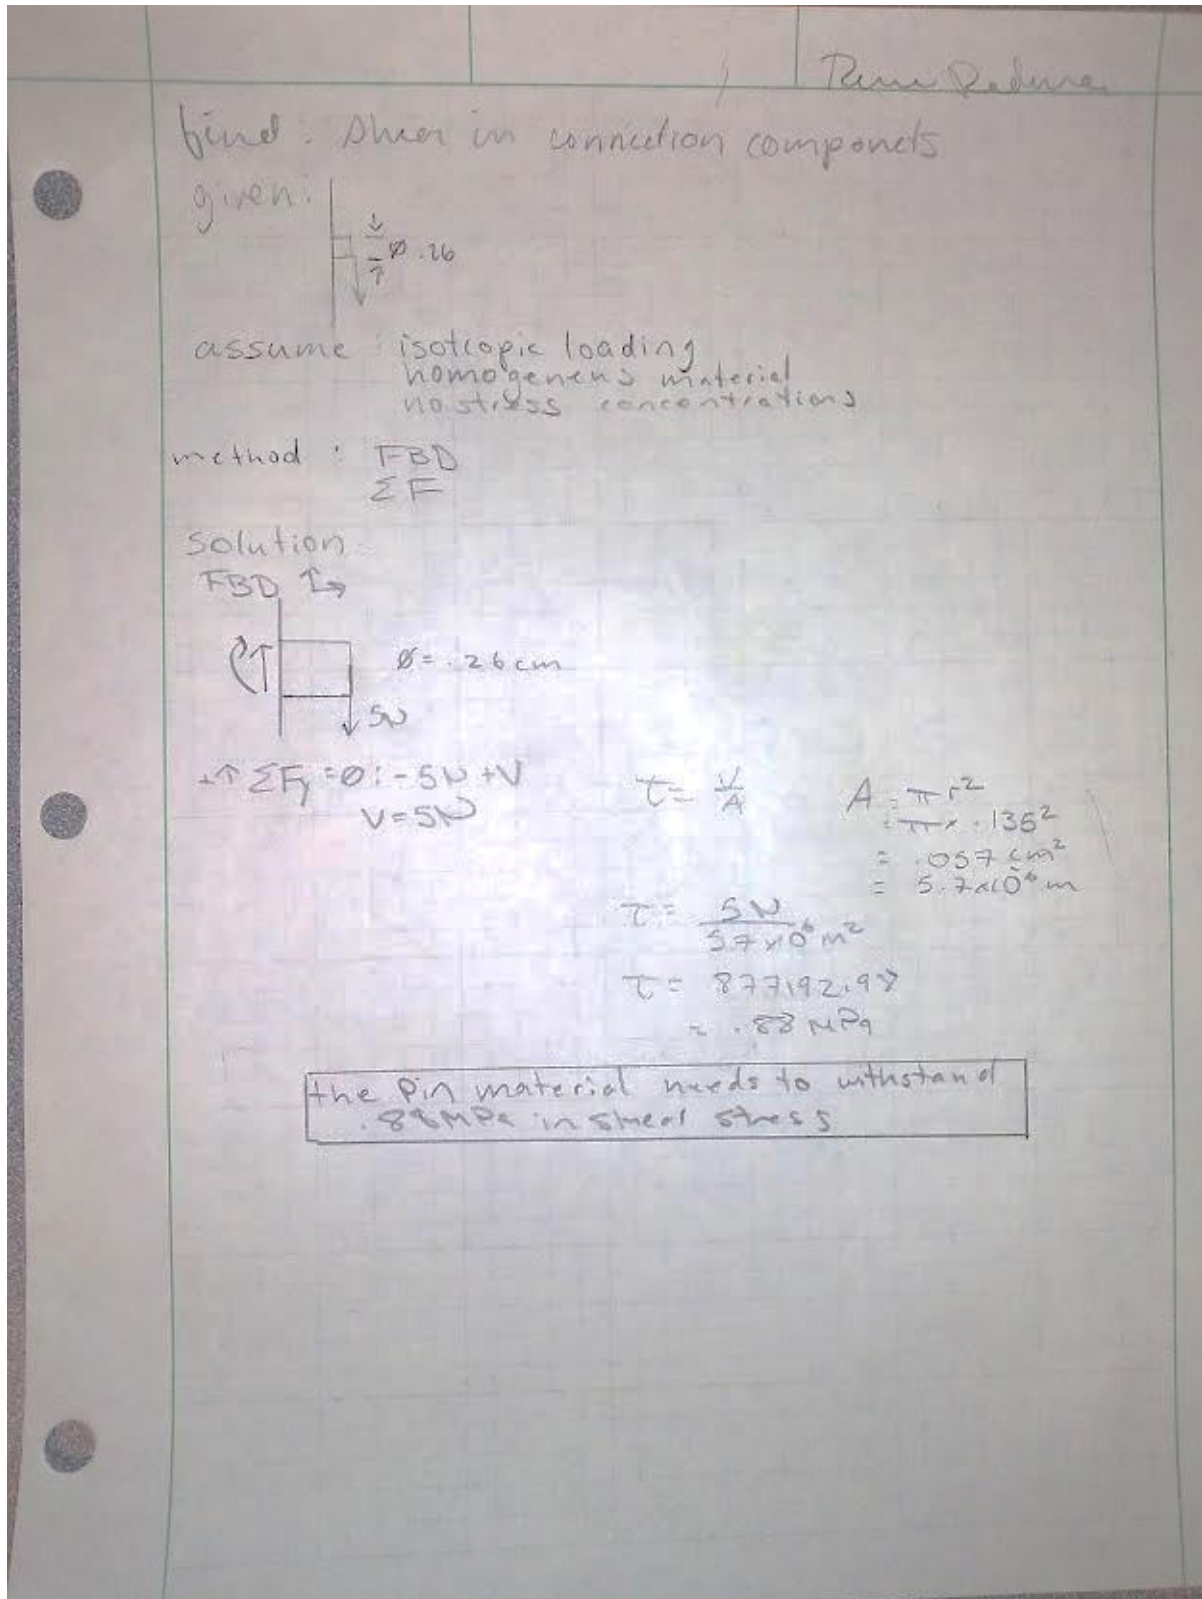 find: Shear in connection componets
given:
Ø .26
assume : isotropic loading
homogenens material
no stress concentrations
method : FBD
ΣF
Solution
FBD
Ø = .26 cm
5N
+↑ ΣFy = 0 : -5N + V
V = 5N
τ = V/A
A = πr²
= π × .135²
= .057 cm²
= 5.7x10⁻⁶ m
τ = 5N / 5.7x10⁻⁶ m²
τ = 877192.98
= .88 MPa
the pin material needs to withstand
.88MPa in shear stress